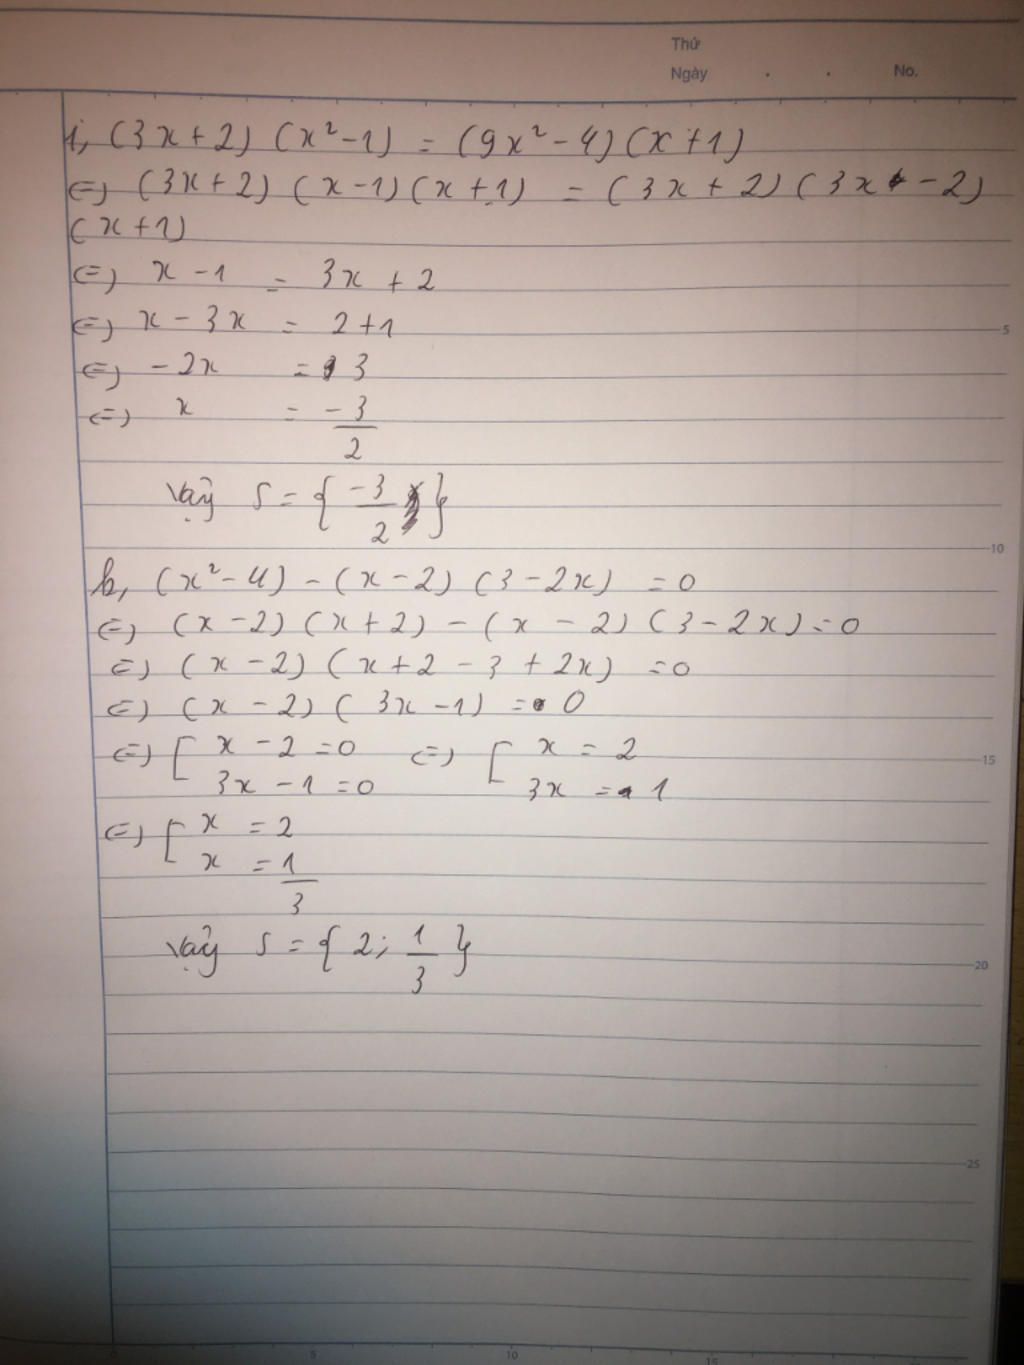 Thứ
Ngày . . No.
i, (3x+2) (x²-1) = (9x²-4)(x+1)
<=> (3x+2) (x-1)(x+1) = (3x+2)(3x-2)
(x+1)
<=> x-1 = 3x+2
<=> x-3x = 2+1
<=> -2x = 3
<=> x = -3/2
Vậy S = { -3/2 }
b, (x²-4) - (x-2) (3-2x) = 0
<=> (x-2) (x+2) - (x-2) (3-2x) = 0
<=> (x-2) (x+2-3+2x) = 0
<=> (x-2) (3x-1) = 0
<=> [ x-2=0 <=> [ x = 2
3x-1=0 3x = 1
<=> [ x = 2
x = 1/3
Vậy S = { 2; 1/3 }
5
10
15
20
25
0 5 10 15